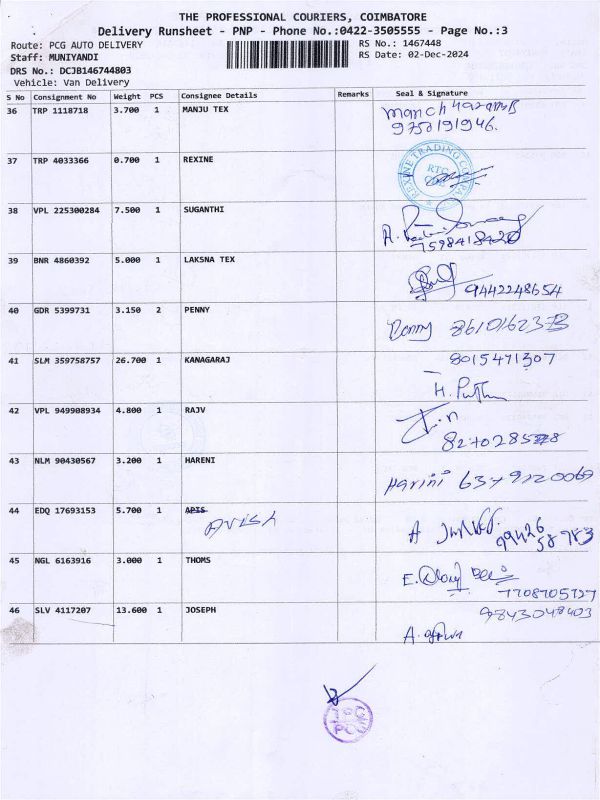 THE PROFESSIONAL COURIERS, COIMBATORE
Delivery Runsheet - PNP - Phone No.:0422-3505555 - Page No.:3
Route: PCG AUTO DELIVERY RS No.: 1467448
Staff: MUNIYANDI RS Date: 02-Dec-2024
DRS No.: DCJB146744803
Vehicle: Van Delivery
S No Consignment No Weight PCS Consignee Details Remarks Seal & Signature
36 TRP 1118718 3.700 1 MANJU TEX
9750191946.
37 TRP 4033366 0.700 1 REXINE
REXINE TRADING COMPANY
RTC
38 VPL 225300284 7.500 1 SUGANTHI
7598418420
39 BNR 4860392 5.000 1 LAKSNA TEX
9442248654
40 GDR 5399731 3.150 2 PENNY
Penny
41 SLM 359758757 26.700 1 KANAGARAJ 8015471307
42 VPL 949908934 4.800 1 RAJV
43 NLM 90430567 3.200 1 HARENI
Harini
44 EDQ 17693153 5.700 1 APIS
99426
58783
45 NGL 6163916 3.000 1 THOMS
7708705727
46 SLV 4117207 13.600 1 JOSEPH 9843048403